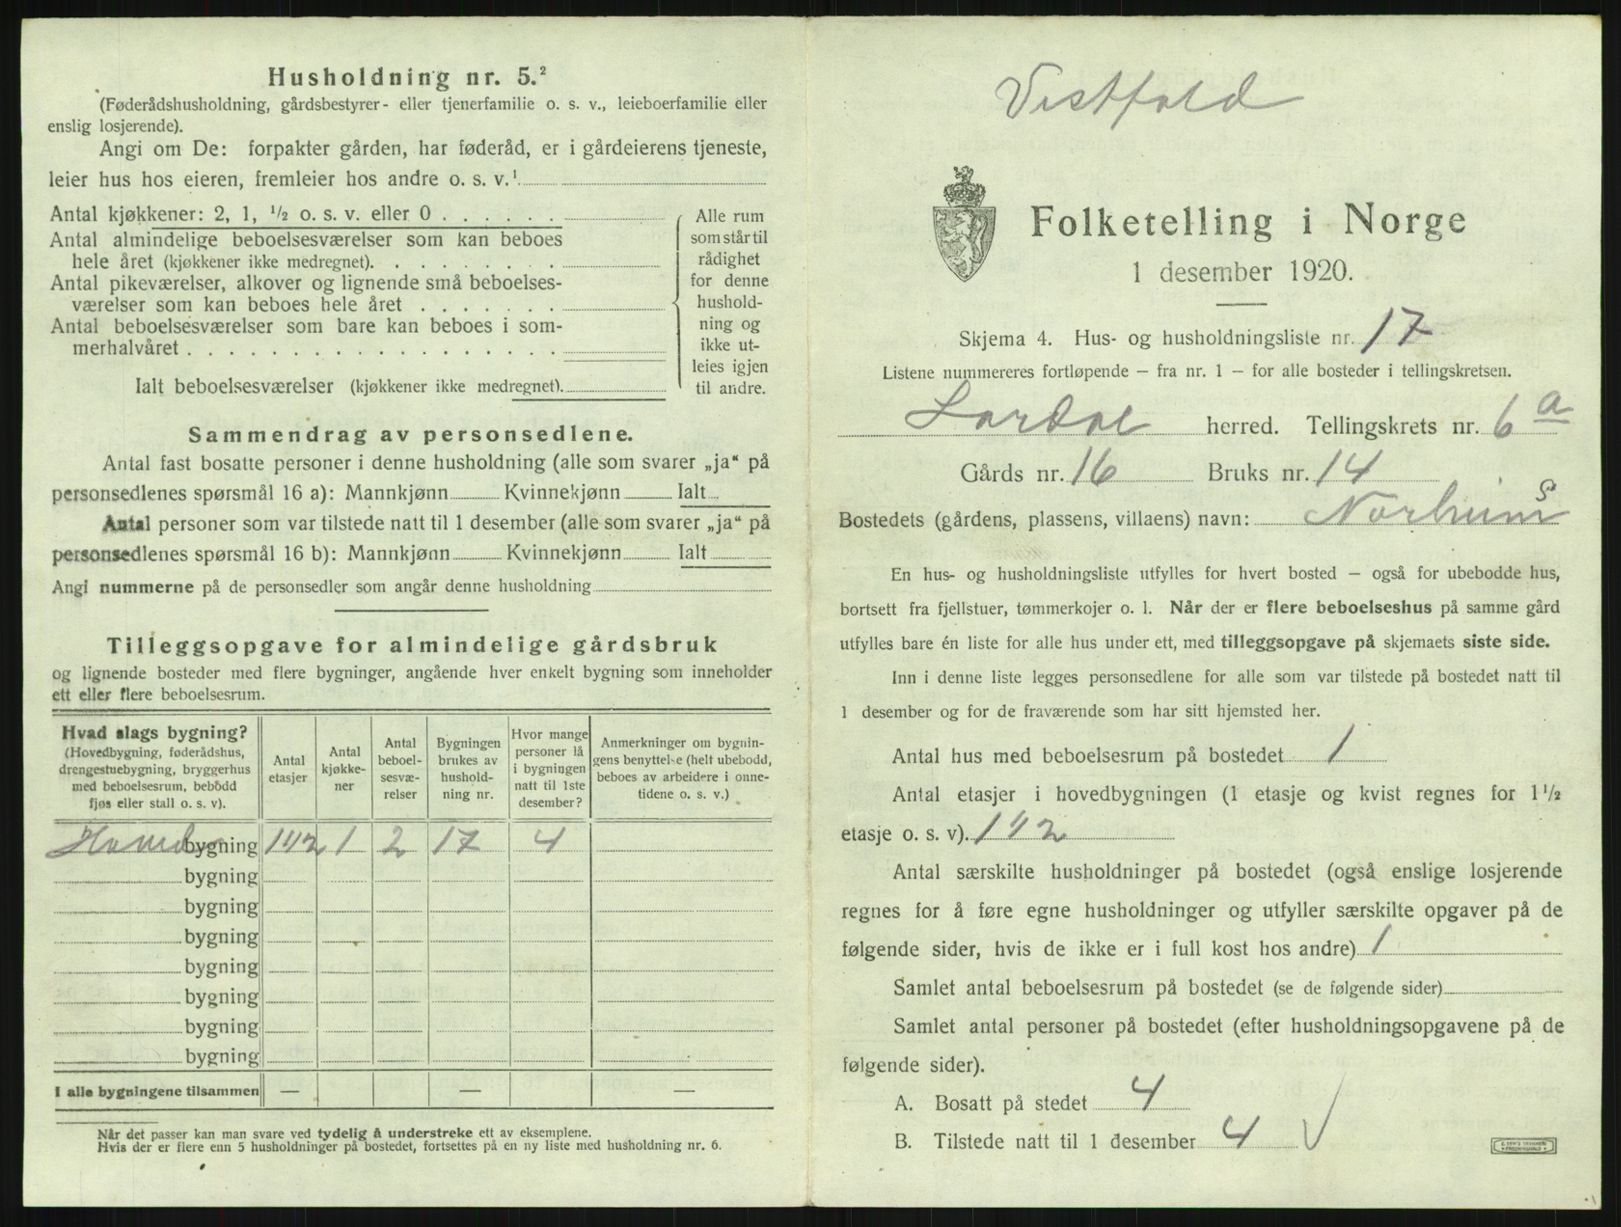 Husholdning nr. 5.²
(Føderådshusholdning, gårdsbestyrer- eller tjenerfamilie o. s. v., leieboerfamilie eller
enslig losjerende).
Angi om De: forpakter gården, har føderåd, er i gårdeierens tjeneste,
leier hus hos eieren, fremleier hos andre o. s. v.¹
Antal kjøkkener: 2, 1, ½ o. s. v. eller 0
Antal almindelige beboelsesværelser som kan beboes
hele året (kjøkkener ikke medregnet).
Antal pikeværelser, alkover og lignende små beboelses-
værelser som kan beboes hele året
Antal beboelsesværelser som bare kan beboes i som-
merhalvåret
Ialt beboelsesværelser (kjøkkener ikke medregnet).
Alle rum
som står til
rådighet
for denne
hushold-
ning og
ikke ut-
leies igjen
til andre.
Sammendrag av personsedlene.
Antal fast bosatte personer i denne husholdning (alle som svarer „ja“ på
personsedlenes spørsmål 16 a): Mannkjønn Kvinnekjønn Ialt
Antal personer som var tilstede natt til 1 desember (alle som svarer „ja“ på
personsedlenes spørsmål 16 b): Mannkjønn Kvinnekjønn Ialt
Angi nummerne på de personsedler som angår denne husholdning
Tilleggsopgave for almindelige gårdsbruk
og lignende bosteder med flere bygninger, angående hver enkelt bygning som inneholder
ett eller flere beboelsesrum.
Hvad slags bygning?
(Hovedbygning, føderådshus,
drengestuebygning, bryggerhus
med beboelsesrum, bebodd
fjøs eller stall o. s. v).
Antal
etasjer
Antal
kjøkke-
ner
Antal
beboel-
sesvæ-
relser
Bygningen
brukes av
hushold-
ning nr.
Hvor mange
personer lå
i bygningen
natt til 1ste
desember?
Anmerkninger om bygnin-
gens benyttelse (helt ubebodd,
beboes av arbeidere i onne-
tidene o. s. v.)
Hovedbygning 1 1/2 1 2 17 4
bygning
bygning
bygning
bygning
bygning
bygning
bygning
I alle bygningene tilsammen — — —
Når det passer kan man svare ved tydelig å understreke ett av eksemplene.
Hvis der er flere enn 5 husholdninger på bostedet, fortsettes på en ny liste med husholdning nr. 6.
Vestfold
Folketelling i Norge
1 desember 1920.
Skjema 4. Hus- og husholdningsliste nr. 17
Listene nummereres fortløpende — fra nr. 1 — for alle bosteder i tellingskretsen.
Lardal herred. Tellingskrets nr. 6 a
Gårds nr. 16 Bruks nr. 14
Bostedets (gårdens, plassens, villaens) navn: Norheim S
En hus- og husholdningsliste utfylles for hvert bosted — også for ubebodde hus,
bortsett fra fjellstuer, tømmerkojer o. l. Når der er flere beboelseshus på samme gård
utfylles bare én liste for alle hus under ett, med tilleggsopgave på skjemaets siste side.
Inn i denne liste legges personsedlene for alle som var tilstede på bostedet natt til
1 desember og for de fraværende som har sitt hjemsted her.
Antal hus med beboelsesrum på bostedet 1
Antal etasjer i hovedbygningen (1 etasje og kvist regnes for 1½
etasje o. s. v). 1 1/2
Antal særskilte husholdninger på bostedet (også enslige losjerende
regnes for å føre egne husholdninger og utfyller særskilte opgaver på de
følgende sider, hvis de ikke er i full kost hos andre) 1
Samlet antal beboelsesrum på bostedet (se de følgende sider)
Samlet antal personer på bostedet (efter husholdningsopgavene på de
følgende sider).
A. Bosatt på stedet 4
B. Tilstede natt til 1 desember 4 √